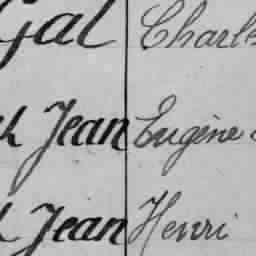 Gal Charles
Jean Eugène
Jean Henri